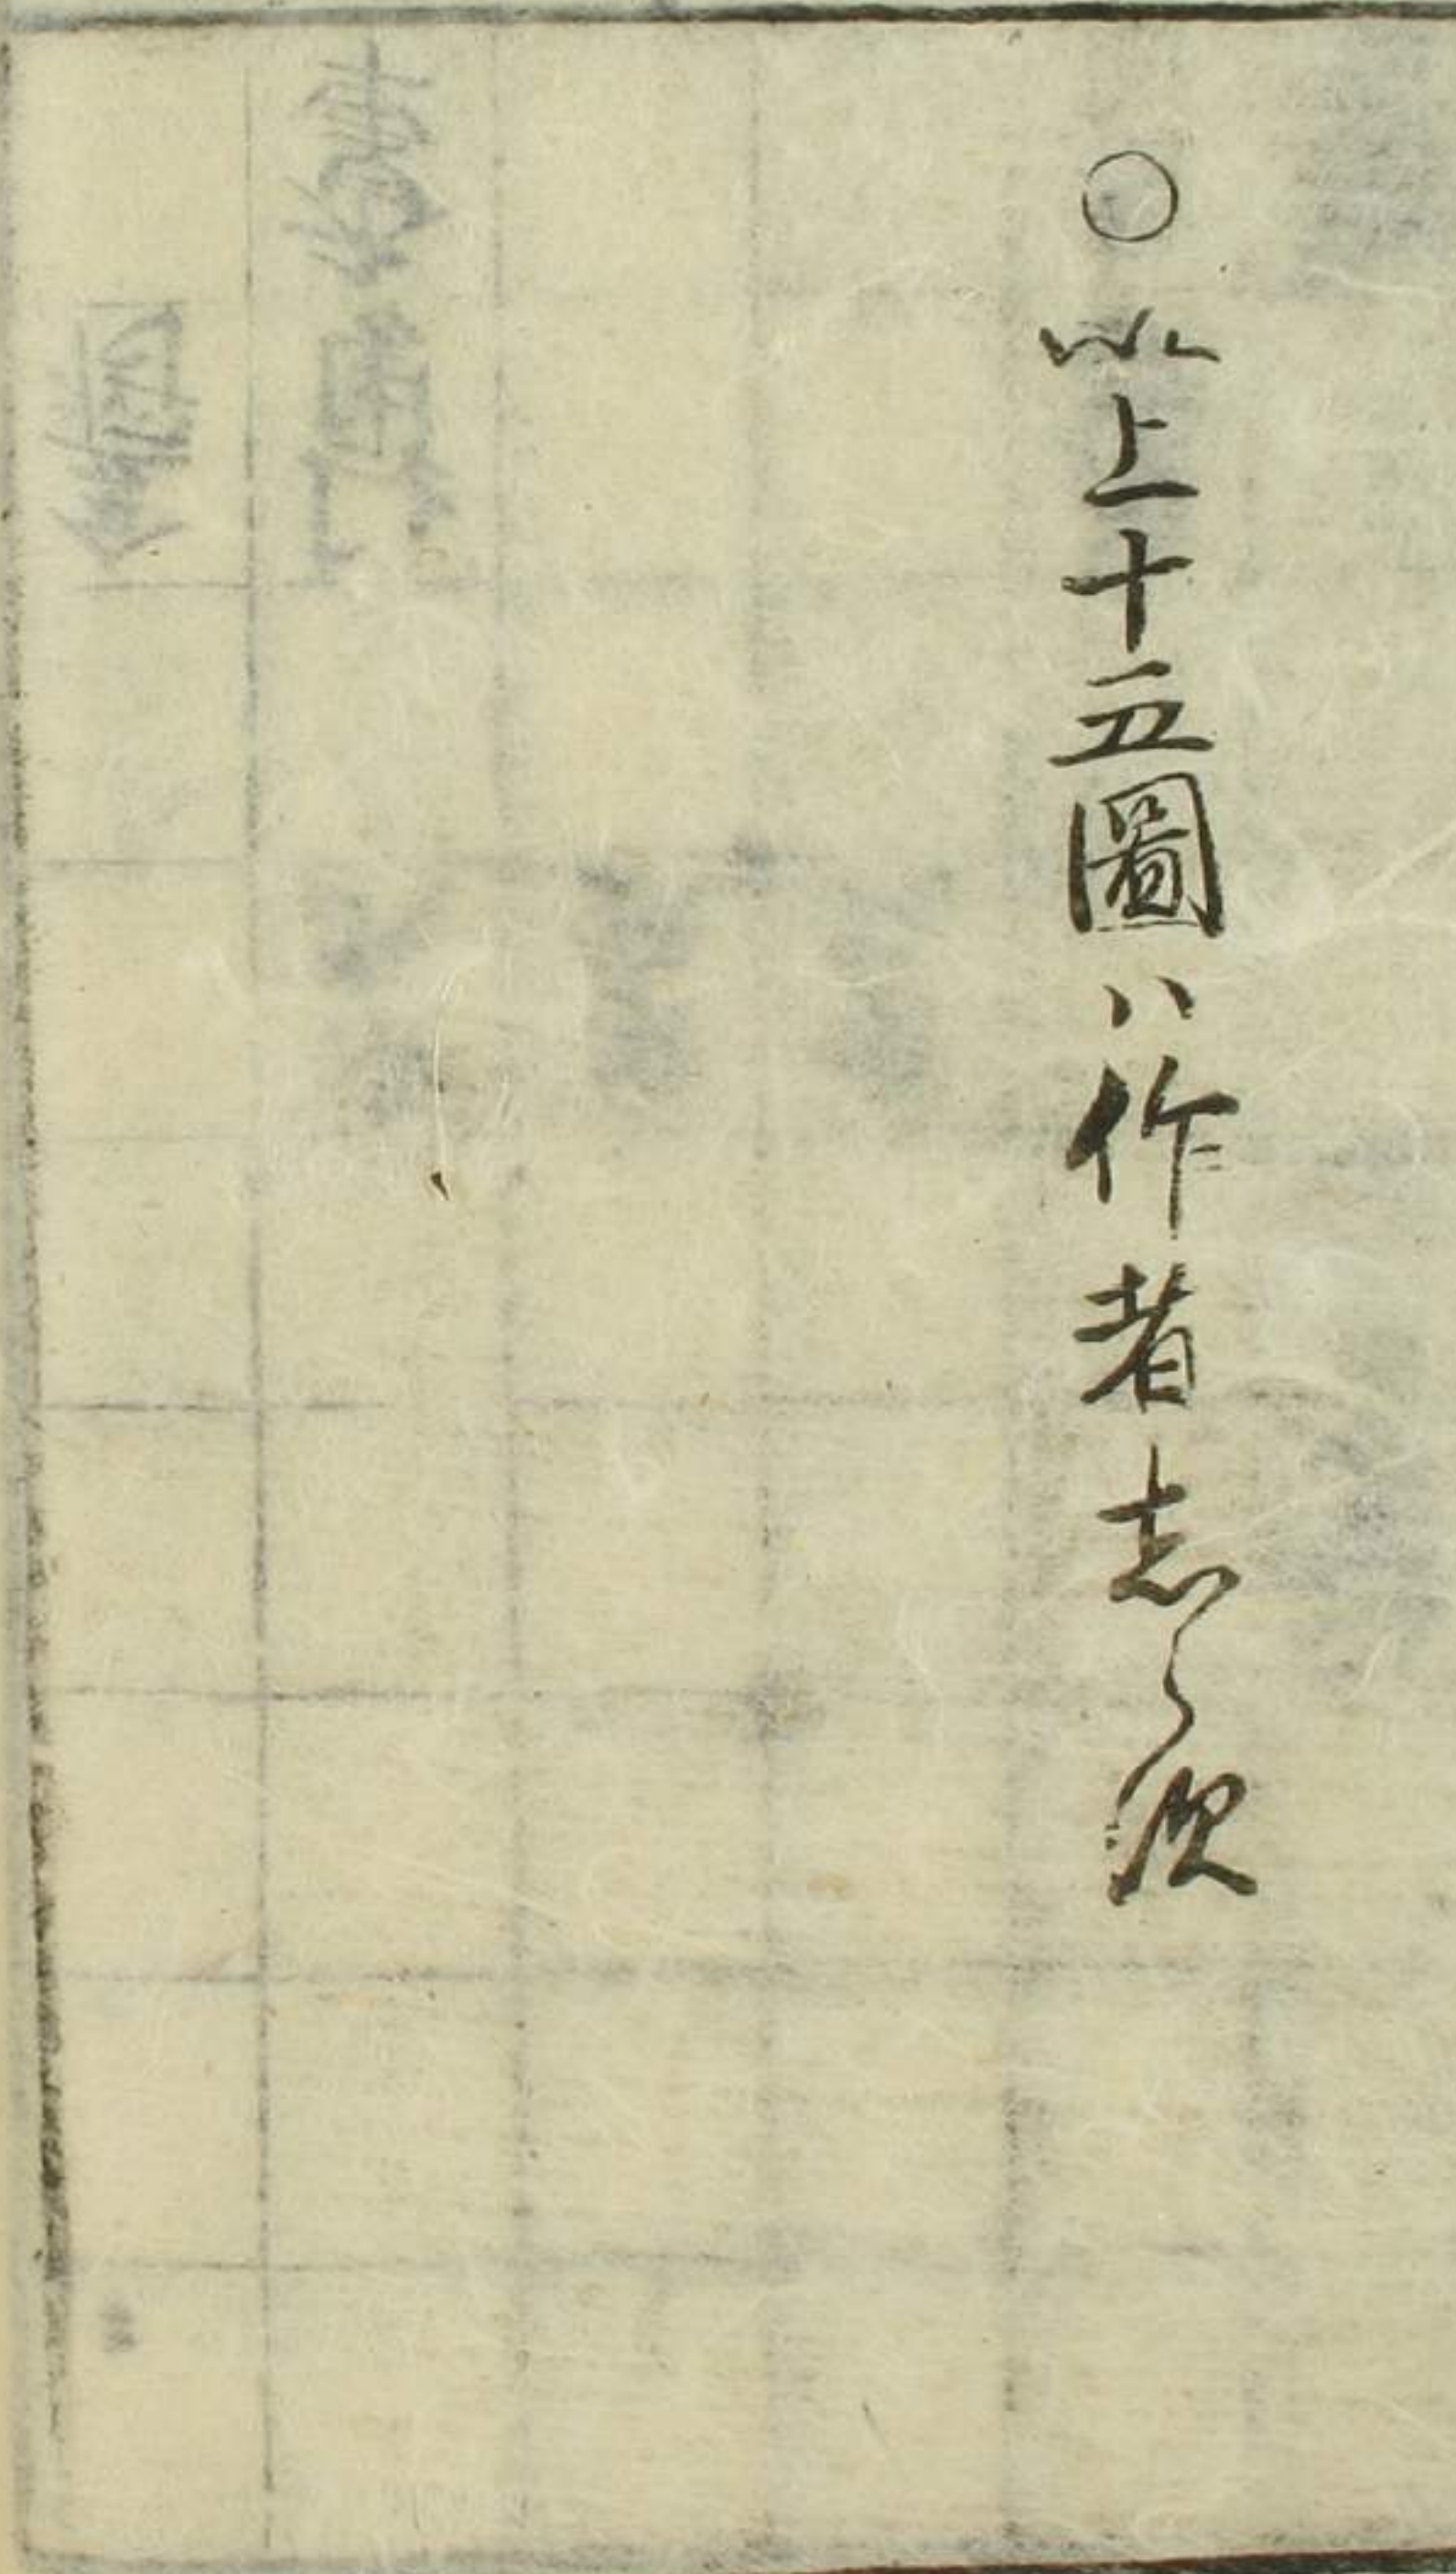 ○以上十五圖ハ作者志らす